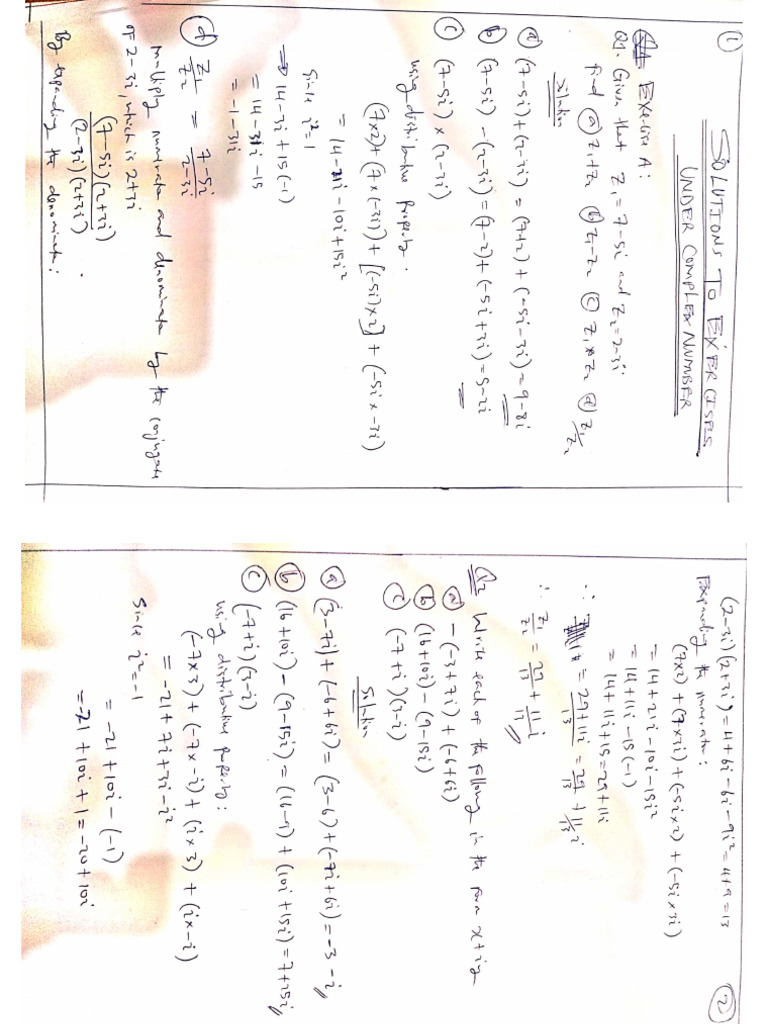 ①
SOLUTIONS TO EXERCISES
UNDER COMPLEX NUMBER
Q1. Exercise A:
Q1. Given that Z₁ = 7-5i and Z₂ = 2-3i
find ⓐ Z₁+Z₂ ⓑ Z₁-Z₂ ⓒ Z₁×Z₂ ⓓ Z₁/Z₂
Solution
ⓐ (7-5i)+(2-3i) = (7+2)+(-5i-3i) = 9-8i
ⓑ (7-5i)-(2-3i) = (7-2)+(-5i+3i) = 5-2i
ⓒ (7-5i)×(2-3i)
using distributive property.
(7×2)+(7×(-3i))+[(-5i)×2]+(-5i×-3i)
= 14-21i-10i+15i²
Since i²=1
→ 14-3i+15(-1)
= 14-31i-15
= -1-31i
ⓓ Z₁/Z₂ = 7-5i/2-3i
multiply numerator and denominator by the conjugate
of 2-3i, which is 2+3i
(7-5i)(2+3i)/(2-3i)(2+3i).
By expanding the denominator:
②
(2-3i)(2+3i) = 4+6i-6i-9i² = 4+9 = 13
Expanding the numerator:
(7×2)+(7×3i)+(-5i×2)+(-5i×3i)
= 14+21i-10i-15i²
= 14+11i-15(-1)
= 14+11i+15 = 29+11i
∴ = 29+11i/13 = 29/13 + 11/13 i
∴ Z₁/Z₂ = 29/13 + 11i/11
Q2 Write each of the following in the form x+iy
ⓐ -(-3+7i)+(-6+6i)
ⓑ (16+10i)-(9-15i)
ⓒ (-7+i)(3-i)
Solution
ⓐ (3-7i)+(-6+6i) = (3-6)+(-7i+6i) = -3-i
ⓑ (16+10i)-(9-15i) = (16-9)+(10i+15i) = 7+25i
ⓒ (-7+i)(3-i)
using distributive property:
(-7×3)+(-7×-i)+(i×3)+(i×-i)
= -21+7i+3i-i²
Since i²=-1
= -21+10i-(-1)
= -21+10i+1 = -20+10i